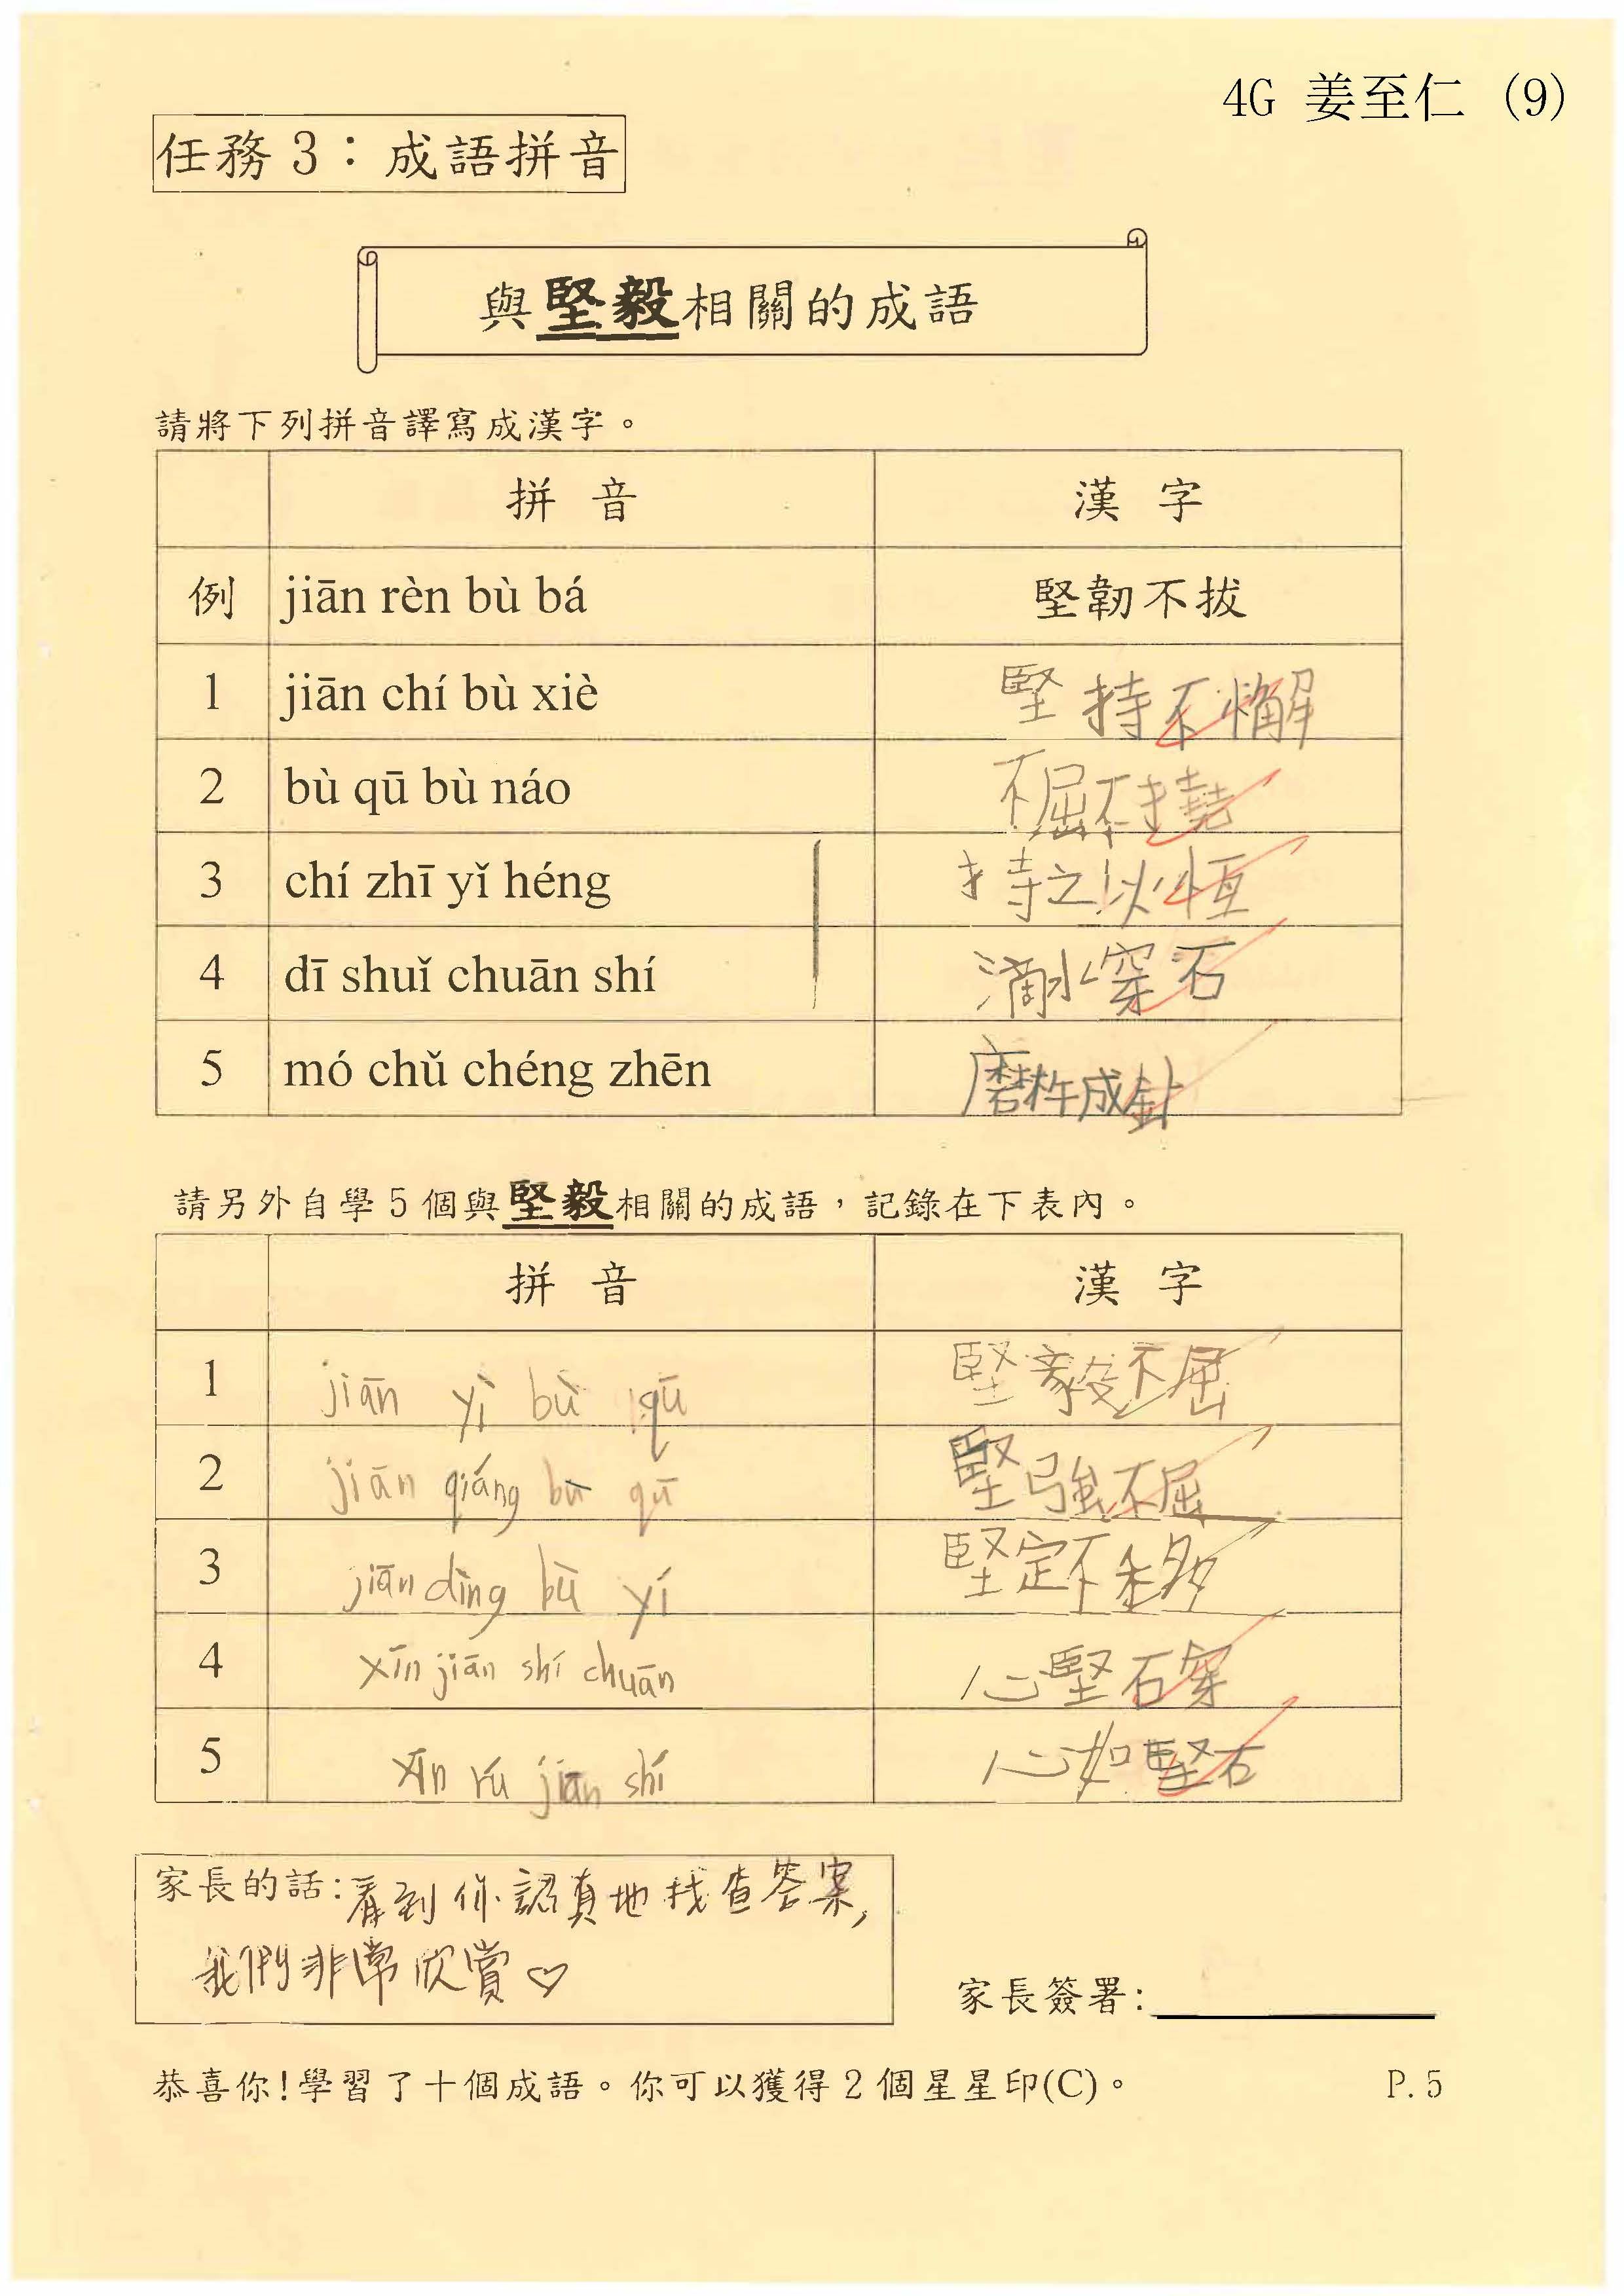 4G 姜至仁 (9)
任務 3：成語拼音
與堅毅相關的成語
請將下列拼音譯寫成漢字。
拼 音 漢 字
例 jiān rèn bù bá 堅韌不拔
1 jiān chí bù xiè 堅持不懈
2 bù qū bù náo 不屈不撓
3 chí zhī yǐ héng 持之以恆
4 dī shuǐ chuān shí 滴水穿石
5 mó chǔ chéng zhēn 磨杵成針
請另外自學 5 個與堅毅相關的成語，記錄在下表內。
拼 音 漢 字
1 jiān yì bù qū 堅毅不屈
2 jiān qiáng bù qū 堅強不屈
3 jiān dìng bù yí 堅定不移
4 xīn jiān shí chuān 心堅石穿
5 xīn rú jiān shí 心如堅石
家長的話：看到你認真地找查答案，
我們非常欣賞♡
家長簽署：
恭喜你！學習了十個成語。你可以獲得 2 個星星印(C)。 P. 5